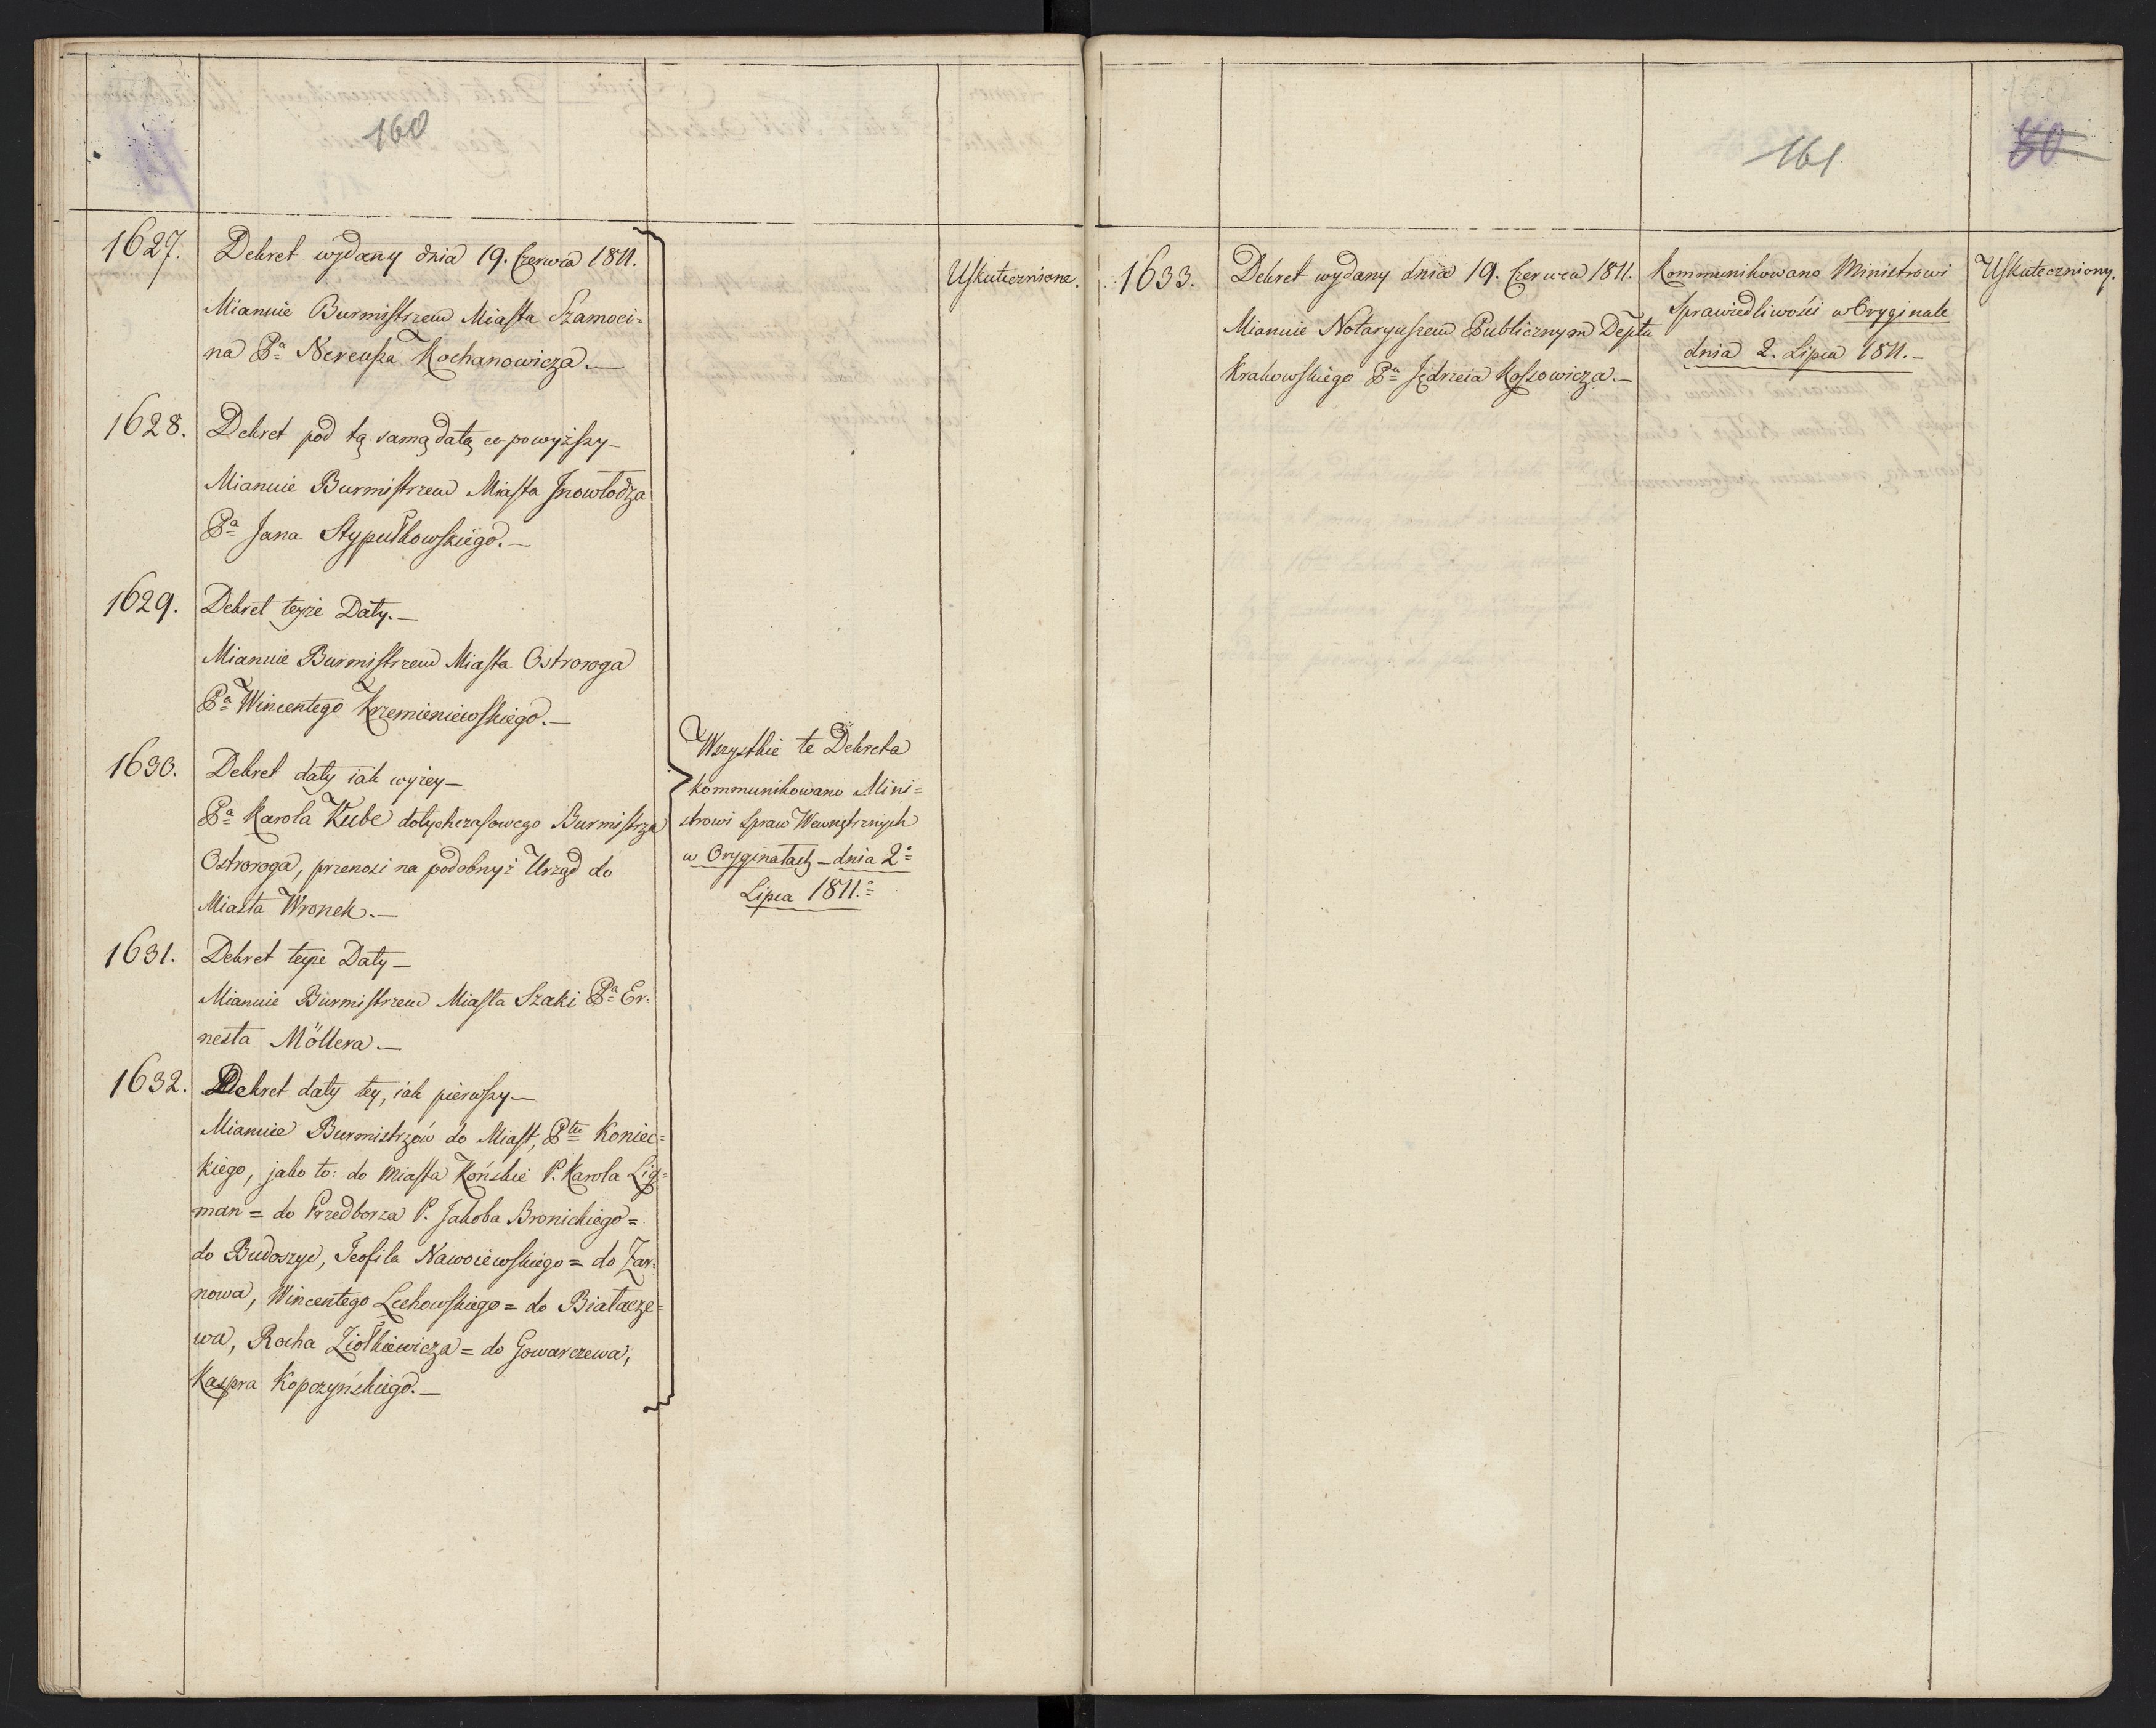 160
1627. Dekret wydany dnia 19. Czerwca 1811.
Mianuie Burmistrzem Miasta Szamoci=
na Pa Nereusza Kochanowicza.—
Uskutecznione.
1628. Dekret pod tą samą datą co powyższy—
Mianuie Burmistrzem Miasta Jnowłodza
Pa Jana Stypułkowskiego.—
1629. Dekret teyże Daty.—
Mianuie Burmistrzem Miasta Ostroroga
Pa Wincentego Krzemieniewskiego.—
1630. Dekret daty iak wyżey—
Pa Karola Kube dotychczasowego Burmistrza
Ostroroga, przenosi na podobnyż Urząd do
Miasta Wronek.—
1631. Dekret teyże Daty—
Mianuie Burmistrzem Miasta Szaki Pa Er=
nesta Möllera.—
1632. Dekret daty tey, iak pierwszy—
Mianuie Burmistrzów do Miast, Ptu Koniec=
kiego, jako to: do Miasta Końskie P. Karola Lig=
man = do Przedborza P. Jakoba Bronickiego =
do Budoszyc, Teofila Nawoiewskiego = do Żar=
nowa, Wincentego Lechowskiego = do Białacze=
wa, Rocha Ziółkiewicza = do Gowarczewa,
Kaspra Kopczyńskiego.—
Wszystkie te Dekreta
kommunikowano Mini=
strowi Spraw Wewnętrznych
w Oryginałach — dnia 2o
Lipca 1811.
161
80
1633. Dekret wydany dnia 19. Czerwca 1811.
Mianuie Notaryuszem Publicznym Deptu
Krakowskiego Pa Jędrzeia Kossowicza.—
Kommunikowano Ministrowi
Sprawiedliwości w Oryginale
dnia 2. Lipca 1811.—
Uskuteczniony.